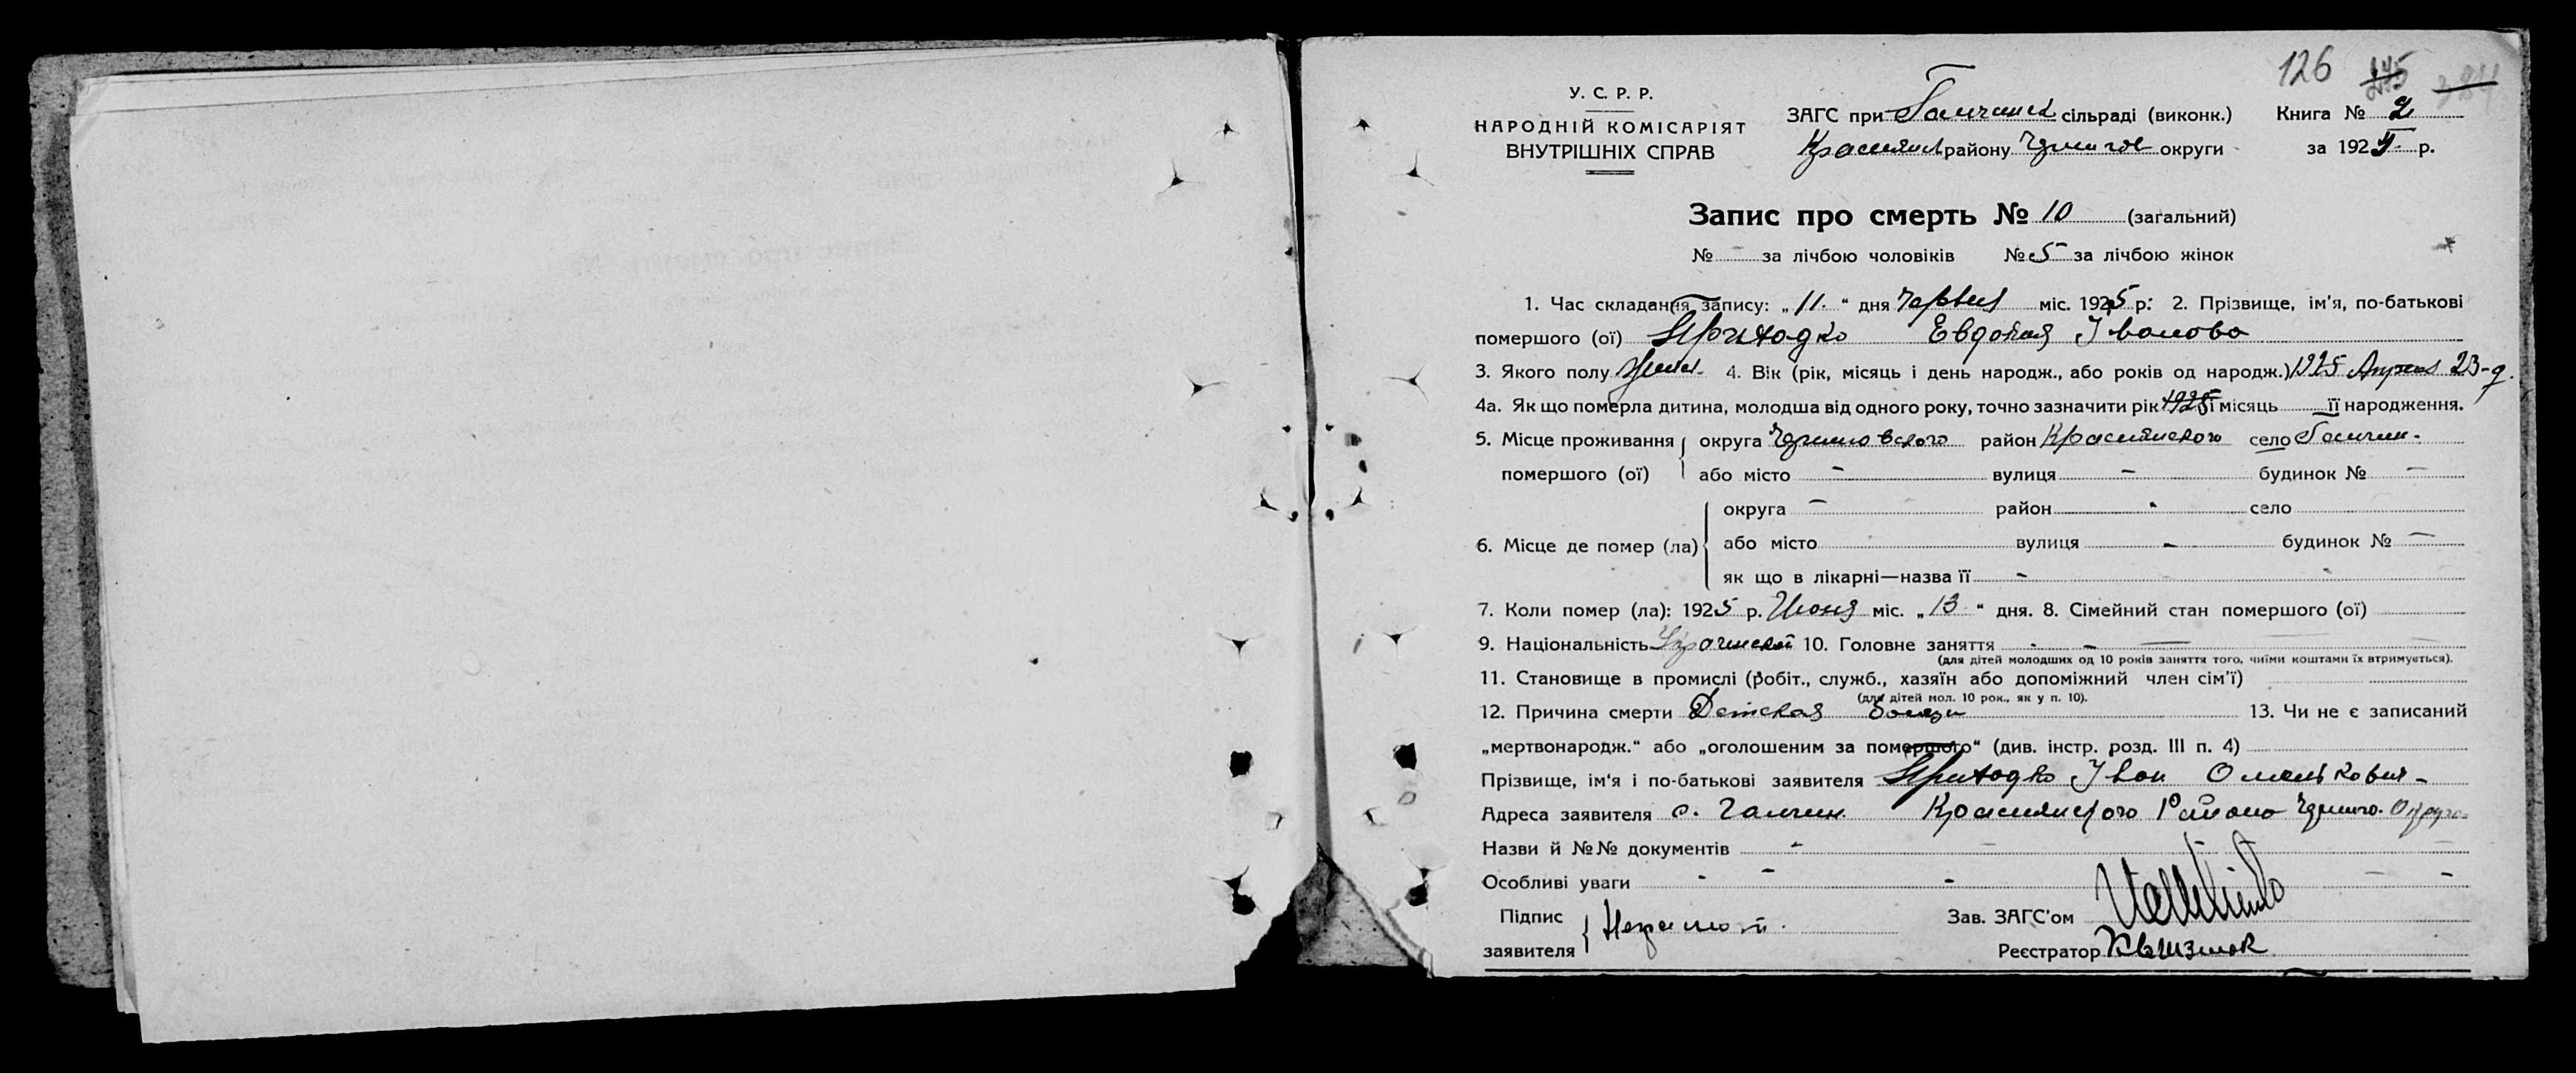 126
У. С. Р. Р.
НАРОДНІЙ КОМІСАРІЯТ
ВНУТРІШНІХ СПРАВ
ЗАГС при сільраді (виконк.) Книга № 2
району округи за 192 р.
Запис про смерть № 10 (загальний)
№ за лічбою чоловіків № 5 за лічбою жінок
1. Час складання запису: „ 11 “ дня міс. 1925 р: 2. Прізвище, ім'я, по-батькові
помершого (ої) Приходко Евдокия Іванова
3. Якого полу 4. Вік (рік, місяць і день народж., або років од народж.) 1925 Апреля 23-д.
4а. Як що померла дитина, молодша від одного року, точно зазначити рік 1925 і місяць її народження.
5. Місце проживання округа район Краснянского село Галчин.
помершого (ої) або місто – вулиця – будинок № –
округа – район - село
6. Місце де помер (ла) або місто вулиця - будинок № –
як що в лікарні—назва її -
7. Коли помер (ла): 1925 р. Июня міс. „ 13 “ дня. 8. Сімейний стан помершого (ої)
9. Національність 10. Головне заняття - - —
(для дітей молодших од 10 років заняття того, чиїми коштами їх втримується).
11. Становище в промислі (робіт., служб., хазяїн або допоміжний член сім'ї)
(для дітей мол. 10 рок., як у п. 10).
12. Причина смерти Детская 13. Чи не є записаний
„мертвонародж.“ або „оголошеним за помершого“ (див. інстр. розд. III п. 4)
Прізвище, ім'я і по-батькові заявителя Приходко Іван Омелькович -
Адреса заявителя с. Галчин Краснянского Району
Назви й №№ документів -
Особливі уваги - - - - -
Підпис
заявителя Неграмот.
Зав. ЗАГС'ом
Реєстратор